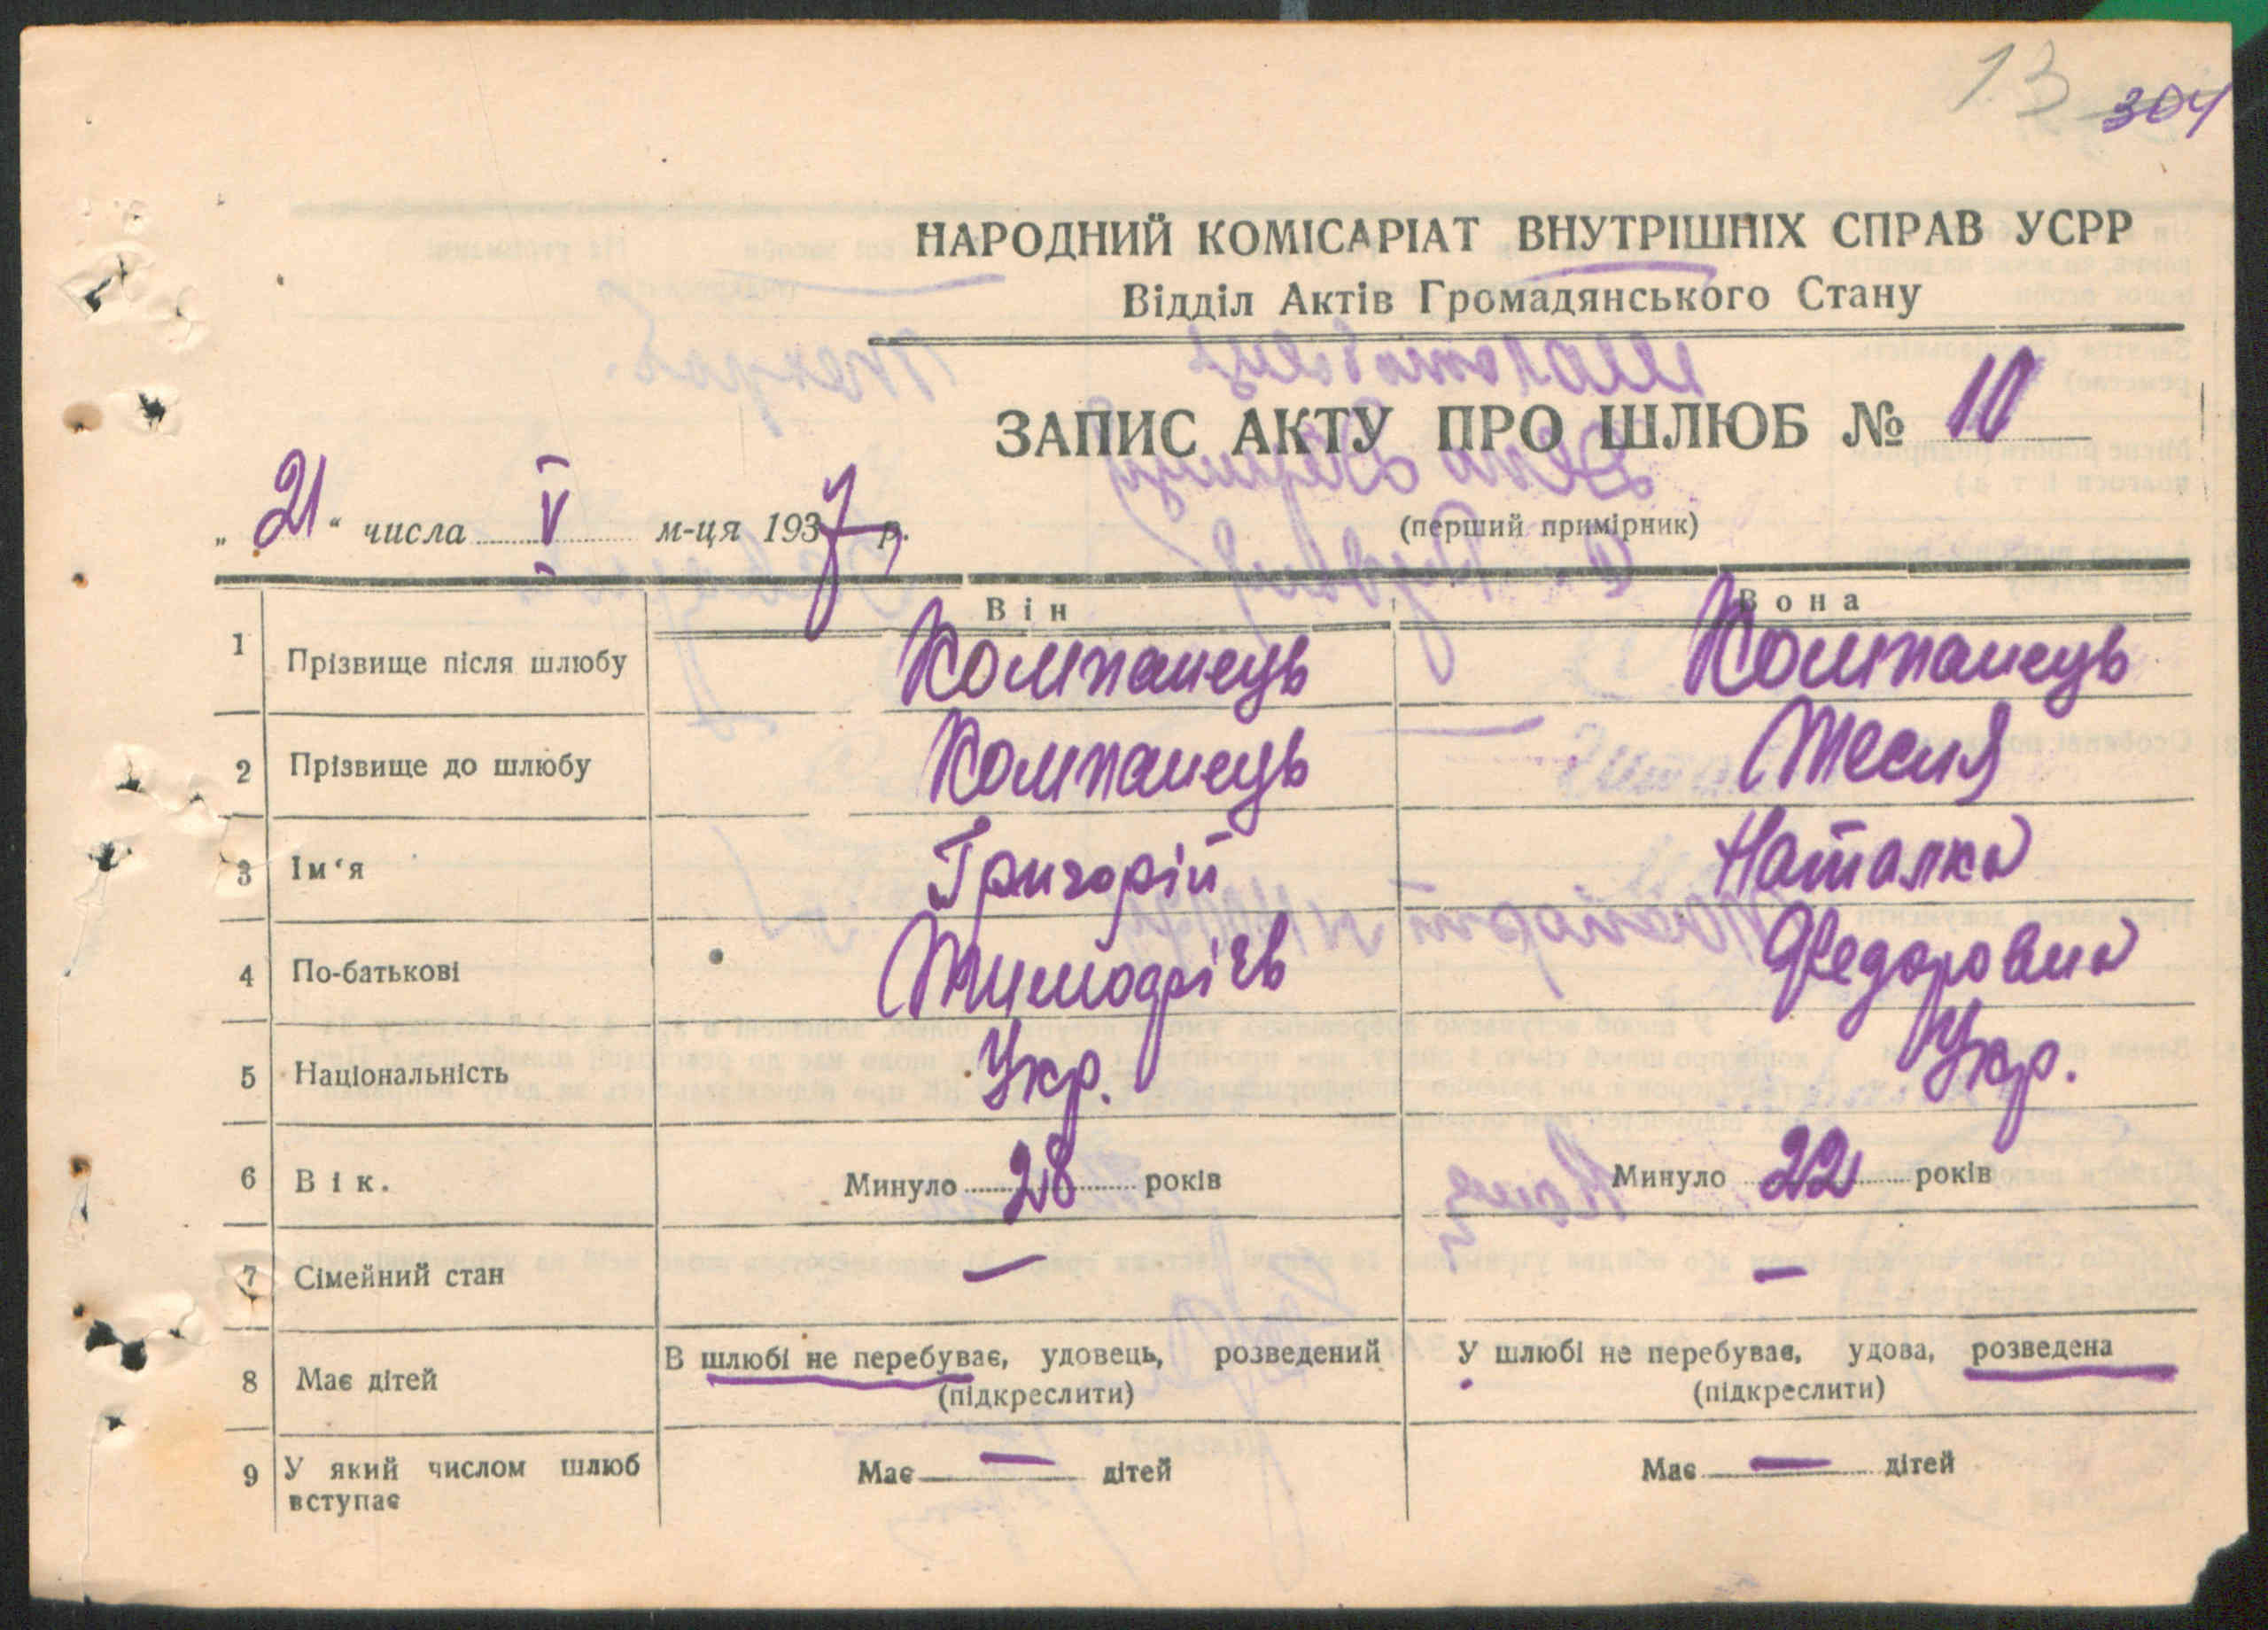 13 304
НАРОДНИЙ КОМІСАРІАТ ВНУТРІШНІХ СПРАВ УСРР
Відділ Актів Громадянського Стану
ЗАПИС АКТУ ПРО ШЛЮБ № 10
„ 21 “ числа V м-ця 1937 р. (перший примірник)
Він Вона
1 Прізвище після шлюбу Компанець Компанець
2 Прізвище до шлюбу Компанець Тесля
3 Ім‘я Григорій Наталка
4 По-батькові Федоровна
5 Національність Укр. Укр.
6 Вік. Минуло 28 років Минуло 22 років
7 Сімейний стан — —
8 Має дітей В шлюбі не перебуває, удовець, розведений У шлюбі не перебуває, удова, розведена
(підкреслити) (підкреслити)
9 У який числом шлюб вступає Має — дітей Має — дітей